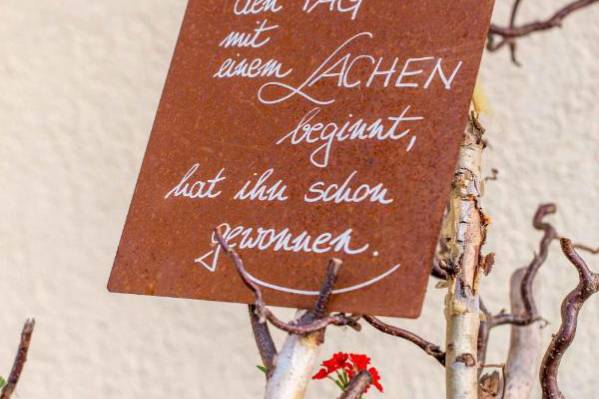 den TAG
mit
einem LACHEN
beginnt,
hat ihn schon
gewonnen.